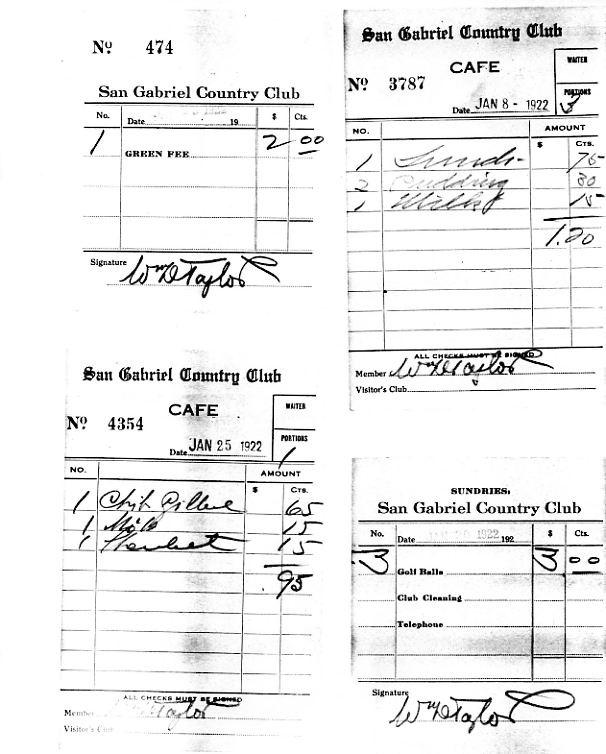 Nº 474
San Gabriel Country Club
No. Date 19 $ Cts.
1 GREEN FEE 2 00
Signature Wm D Taylor
San Gabriel Country Club
CAFE
WAITER
Nº 3787
PORTIONS
Date JAN 8 - 1922 3
NO. AMOUNT
$ CTS.
1 Lunch 75
2 Pudding 30
1 Milk 15
1.20
ALL CHECKS MUST BE SIGNED
Member Wm D Taylor
Visitor's Club
San Gabriel Country Club
CAFE
WAITER
Nº 4354
PORTIONS
Date JAN 25 1922 1
NO. AMOUNT
$ CTS.
1 65
1 Milk 15
1 15
.95
ALL CHECKS MUST BE SIGNED
Member Taylor
Visitor's Club
SUNDRIES:
San Gabriel Country Club
No. Date 1922 192 $ Cts.
3 Golf Balls 3 00
Club Cleaning
Telephone
Signature Wm D Taylor